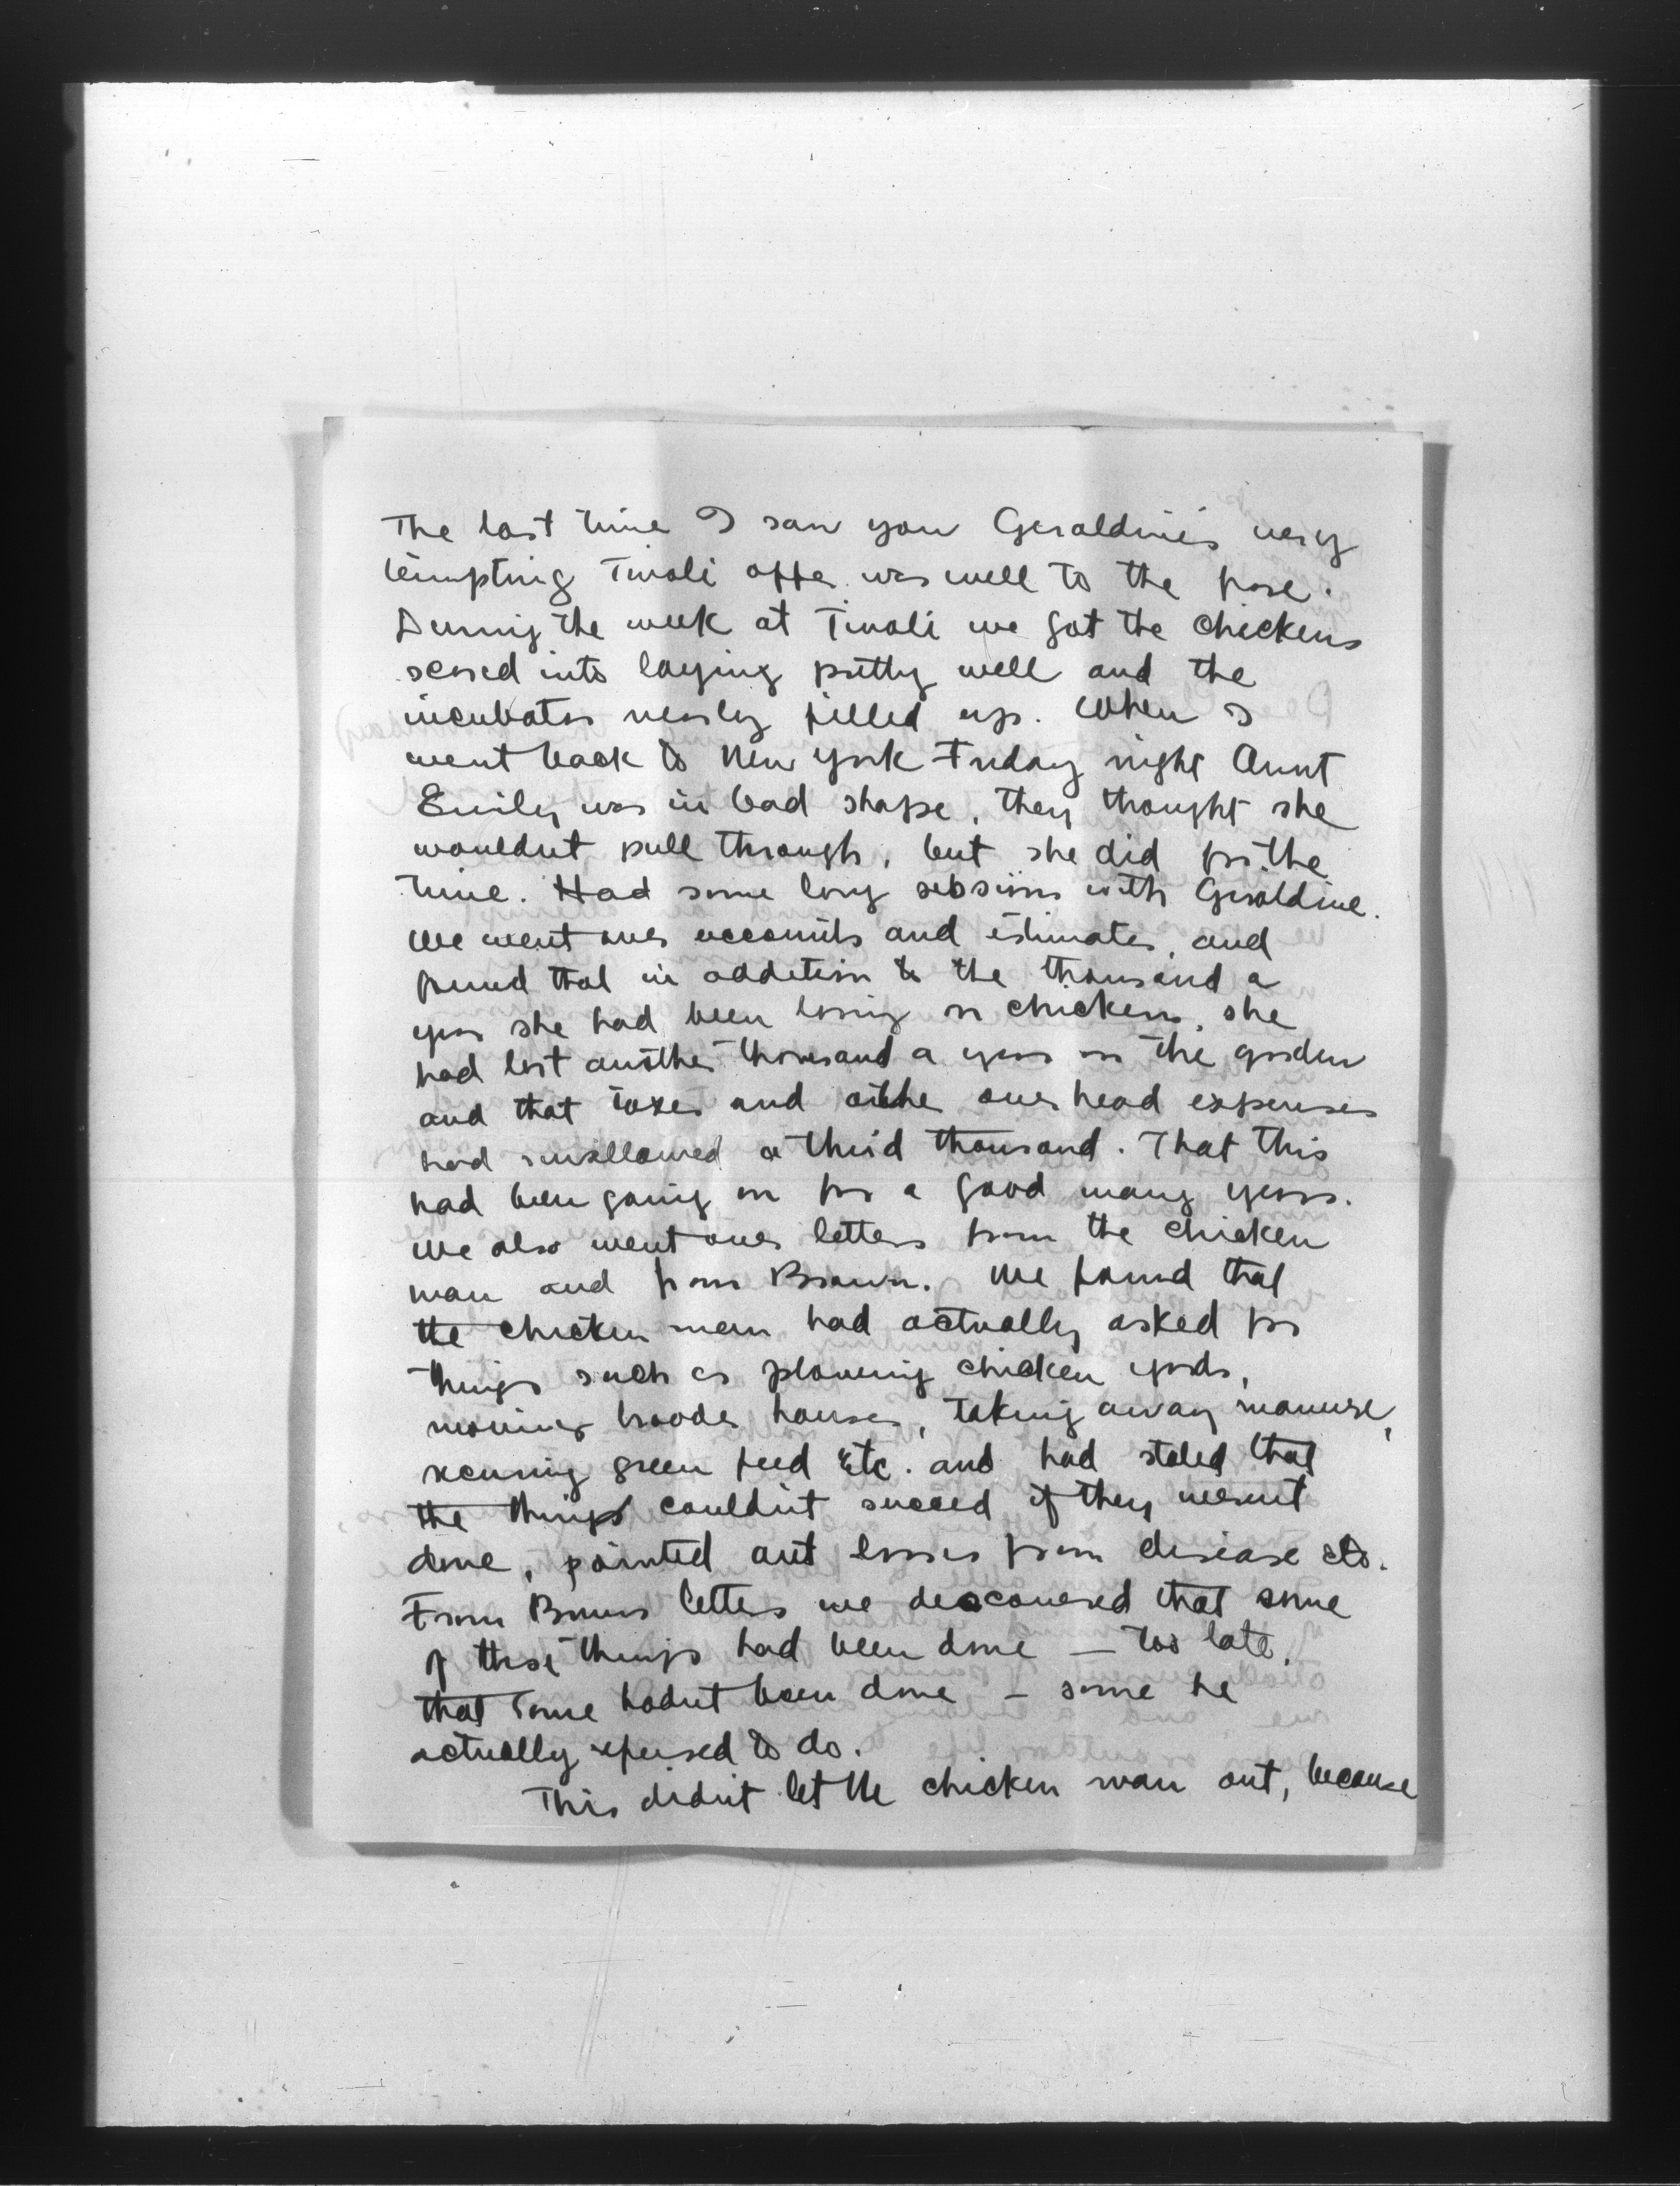 The last time I saw you Geraldine's very
tempting Tivoli offer was well to the fore.
During the week at Tivoli we got the chickens
scared into laying pretty well and the
incubator nearly filled up. When I
went back to New York Friday night Aunt
Emily was in bad shape, they thought she
wouldn't pull through, but she did for the
time. Had some long sessions with Geraldine.
We went over accounts and estimates, and
found that in addition to the thousand a
year she had been losing on chickens, she
had lost another thousand a year on the garden
and that taxes and other overhead expenses
had swallowed a third thousand. That this
had been going on for a good many years.
We also went over letters from the chicken
man and from Brown. We found that
the chicken man had actually asked for
things such as plowing chicken yards,
moving brooder houses, taking away manure,
securing green feed etc. and had stated that
the things couldn't succeed if they weren't
done, pointed out losses from disease etc.
From Browns letters we descovered that some
of these things had been done — too late,
that some hadn't been done — some he
actually refused to do.
This didn't let the chicken man out, because